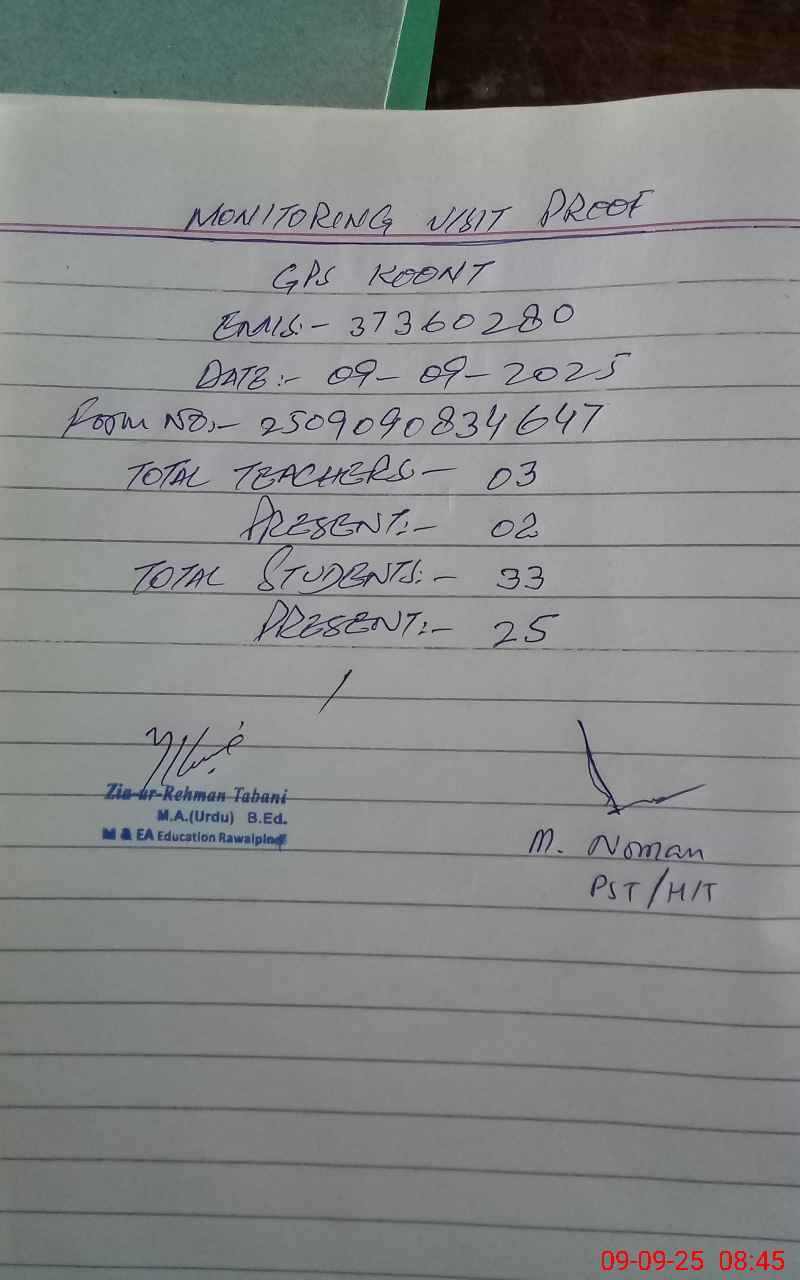 MONITORING VISIT PROOF
GPS KOONT
EMIS:- 37360280
DATE:- 09-09-2025
ROOM NO:- 2509090834647
TOTAL TEACHERS- 03
PRESENT:- 02
TOTAL STUDENTS:- 33
PRESENT:- 25
Zia-ur-Rehman Tabani
M.A.(Urdu) B.Ed.
M & EA Education Rawalpindi
M. Noman
PST/H/T
09-09-25 08:45